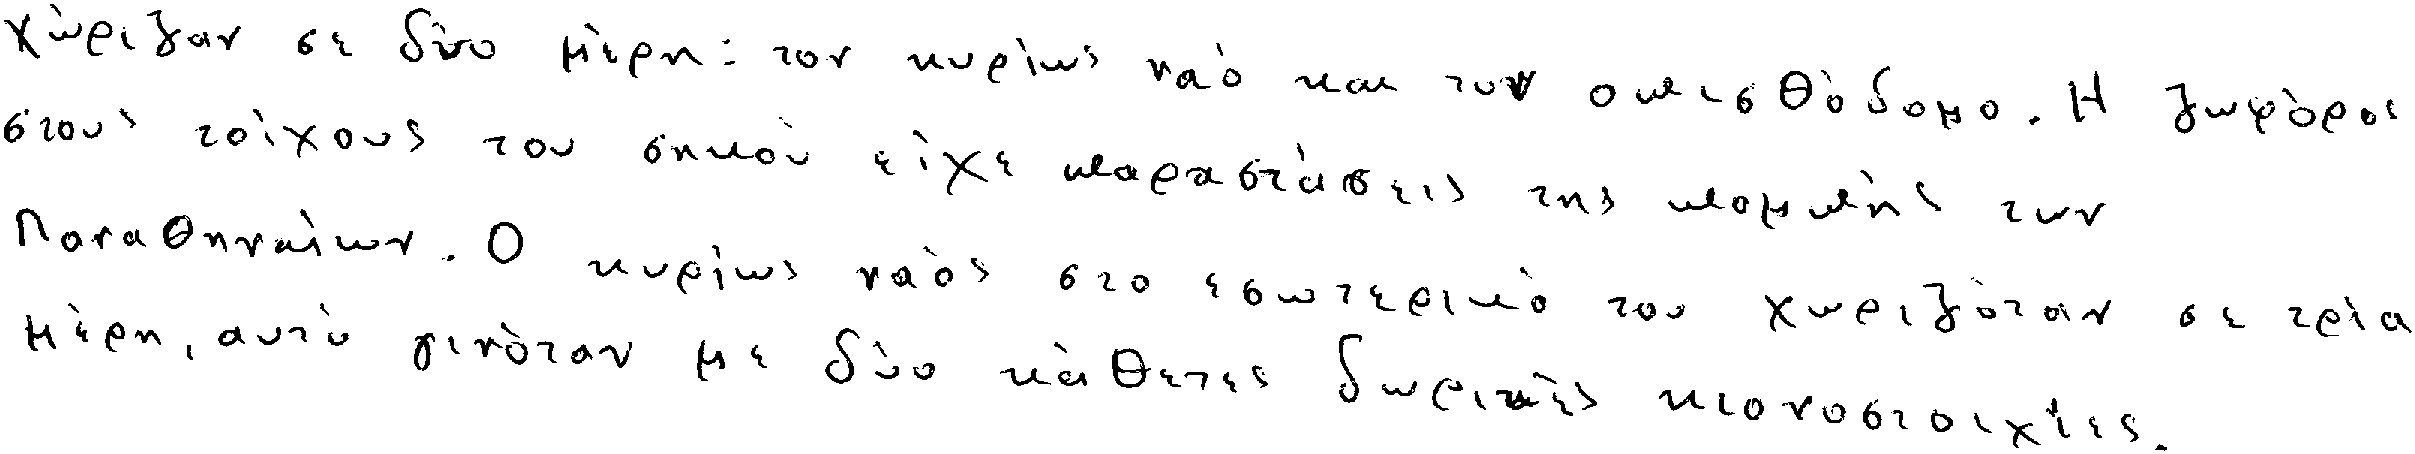 χώριζαν σε δύο μέρη: τον κυρίως ναό και τον οπισθόδομο. Η ζωφόρος
στους τοίχους του σηκού είχε παραστάσεις της πομπής των
Παναθηναίων. Ο κυρίως ναός στο εσωτερικό του χωριζόταν σε τρία
μέρη, αυτό γινόταν με δύο κάθετες δωρικές κιονοστοιχίες.